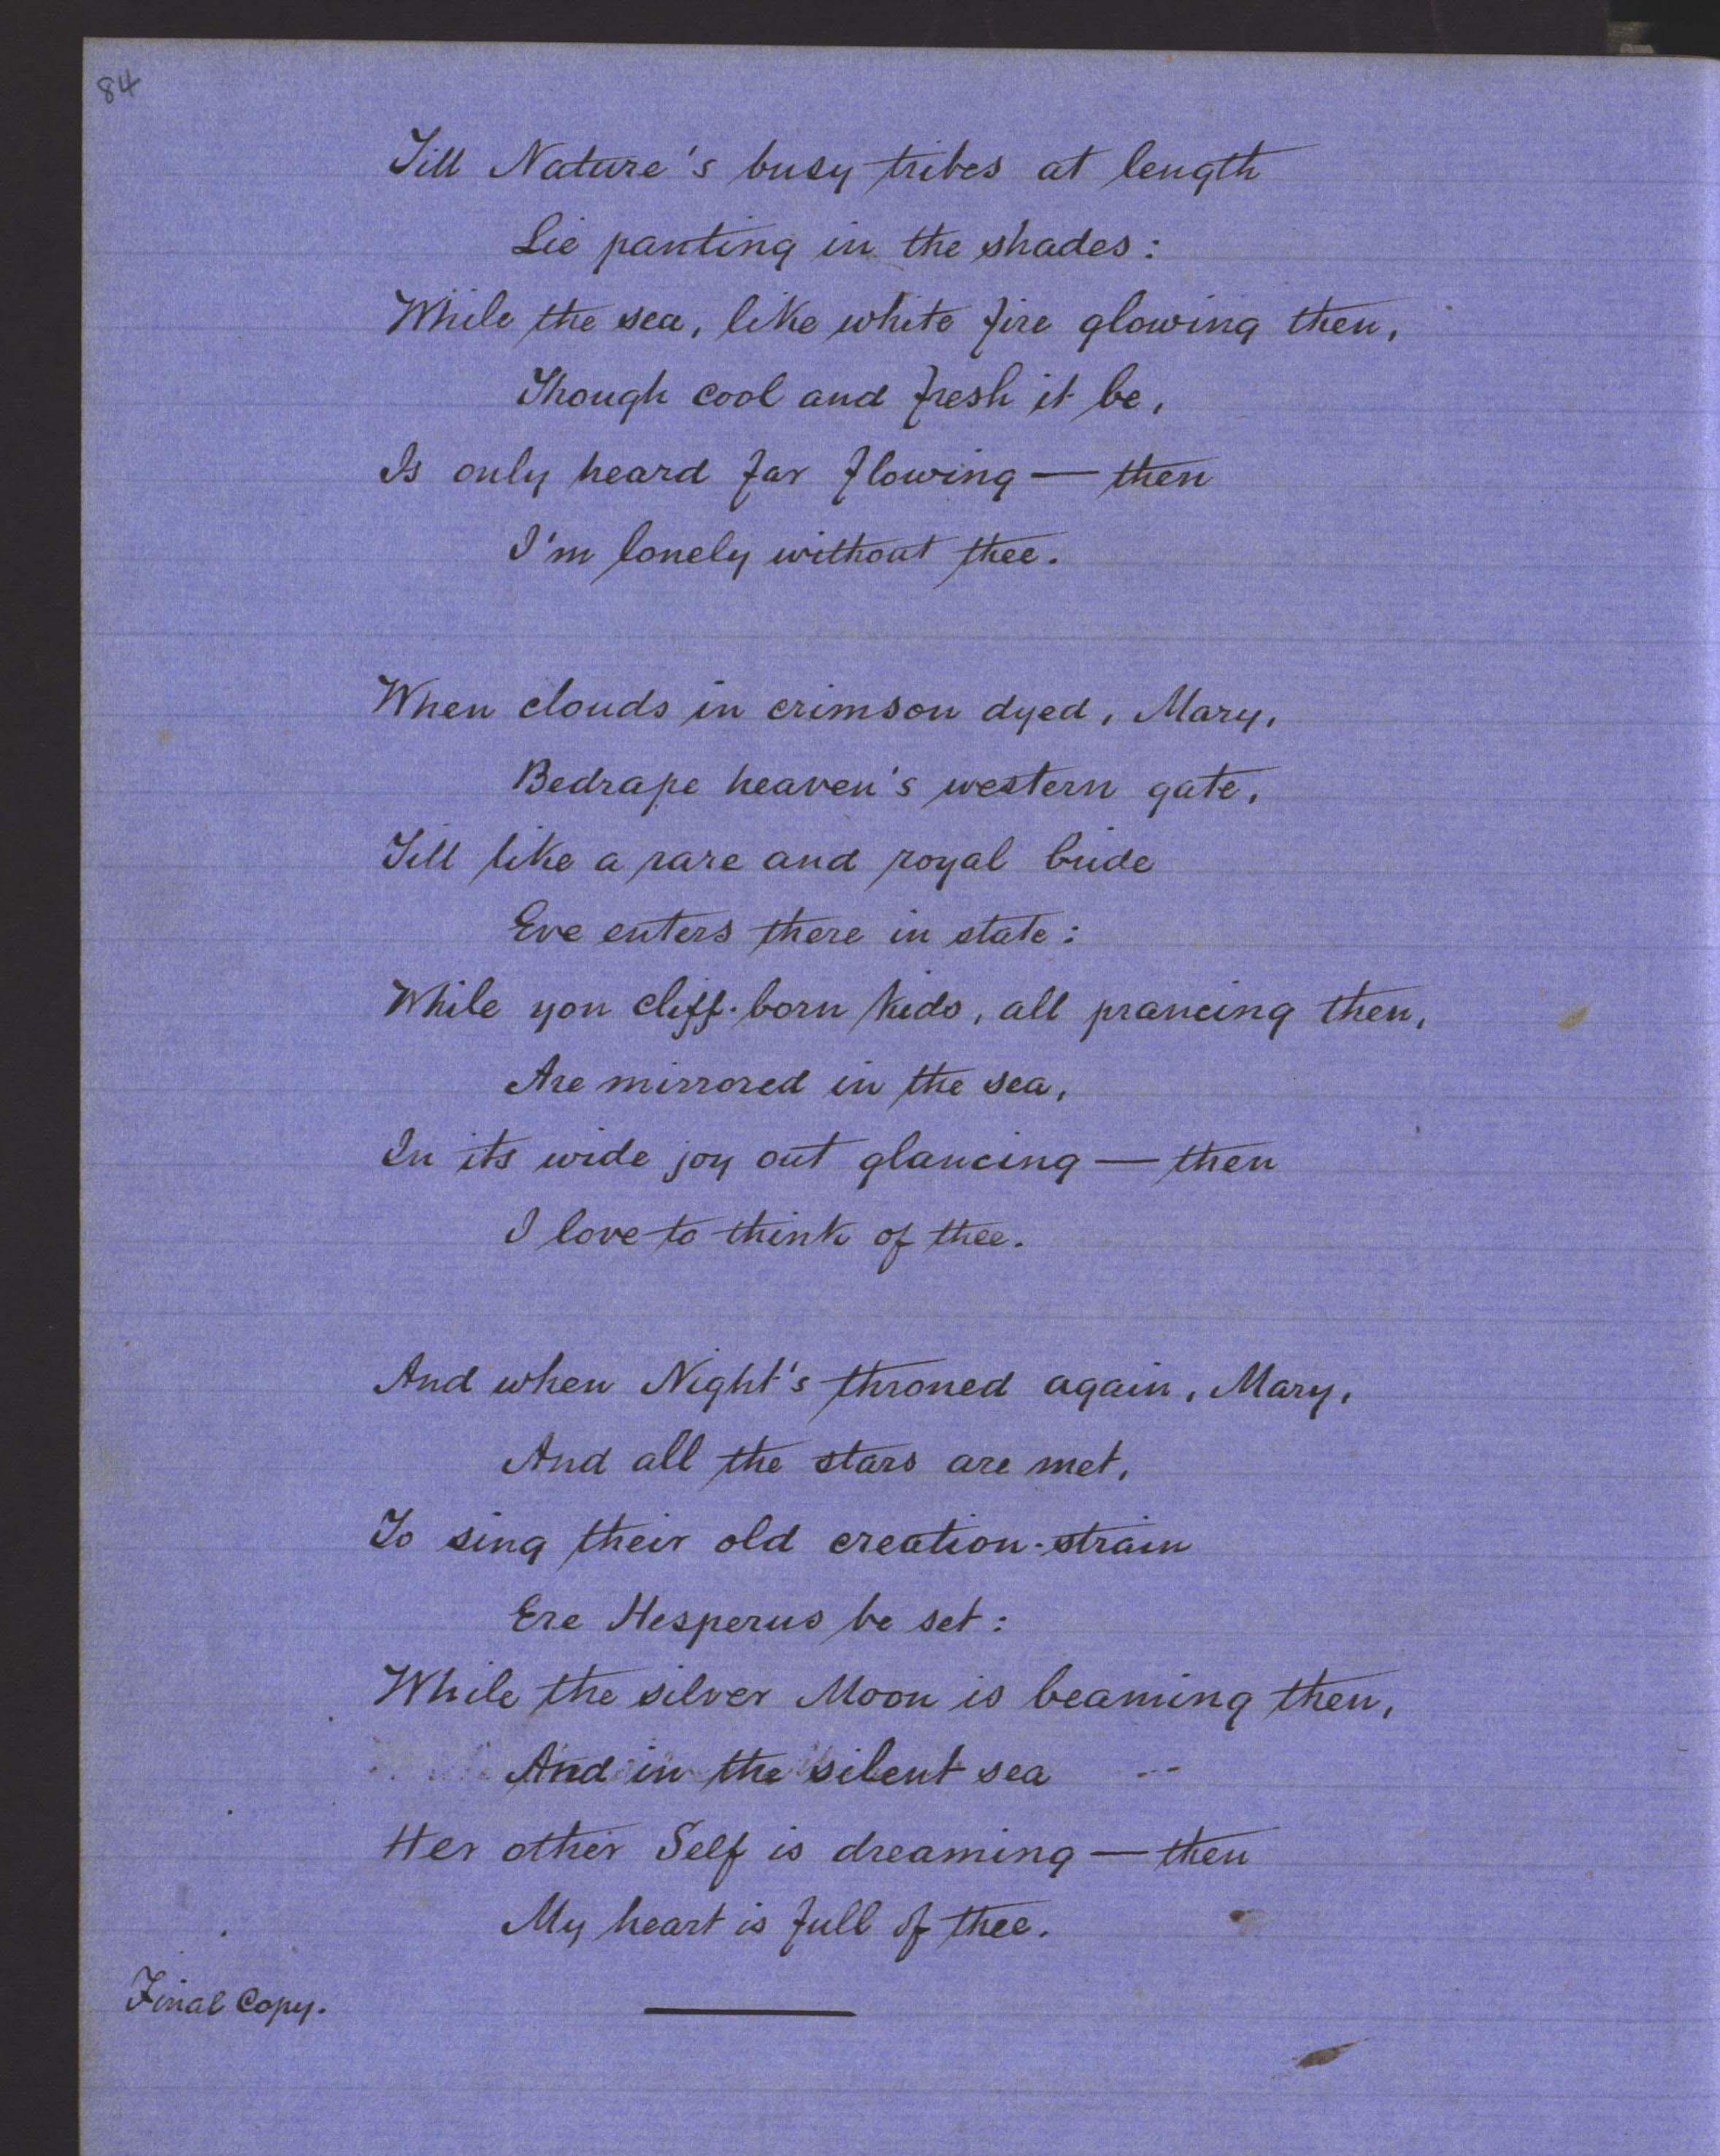 84
Till Nature's busy tribes at length
Lie panting in the shades:
While the sea, like white fire glowing then,
Though cool and fresh it be,
Is only heard far flowing — then
I'm lonely without thee.
When clouds in crimson dyed, Mary,
Bedrape heaven's western gate,
Till like a rare and royal bride
Eve enters there in state:
While yon cliff-born kids, all prancing then,
Are mirrored in the sea,
In its wide joy out glancing — then
I love to think of thee.
And when Night's throned again, Mary,
And all the stars are met,
To sing their old creation-strain
Ere Hesperus be set:
While the silver Moon is beaming then,
And in the silent sea
Her other Self is dreaming — then
My heart is full of thee.
Final Copy.